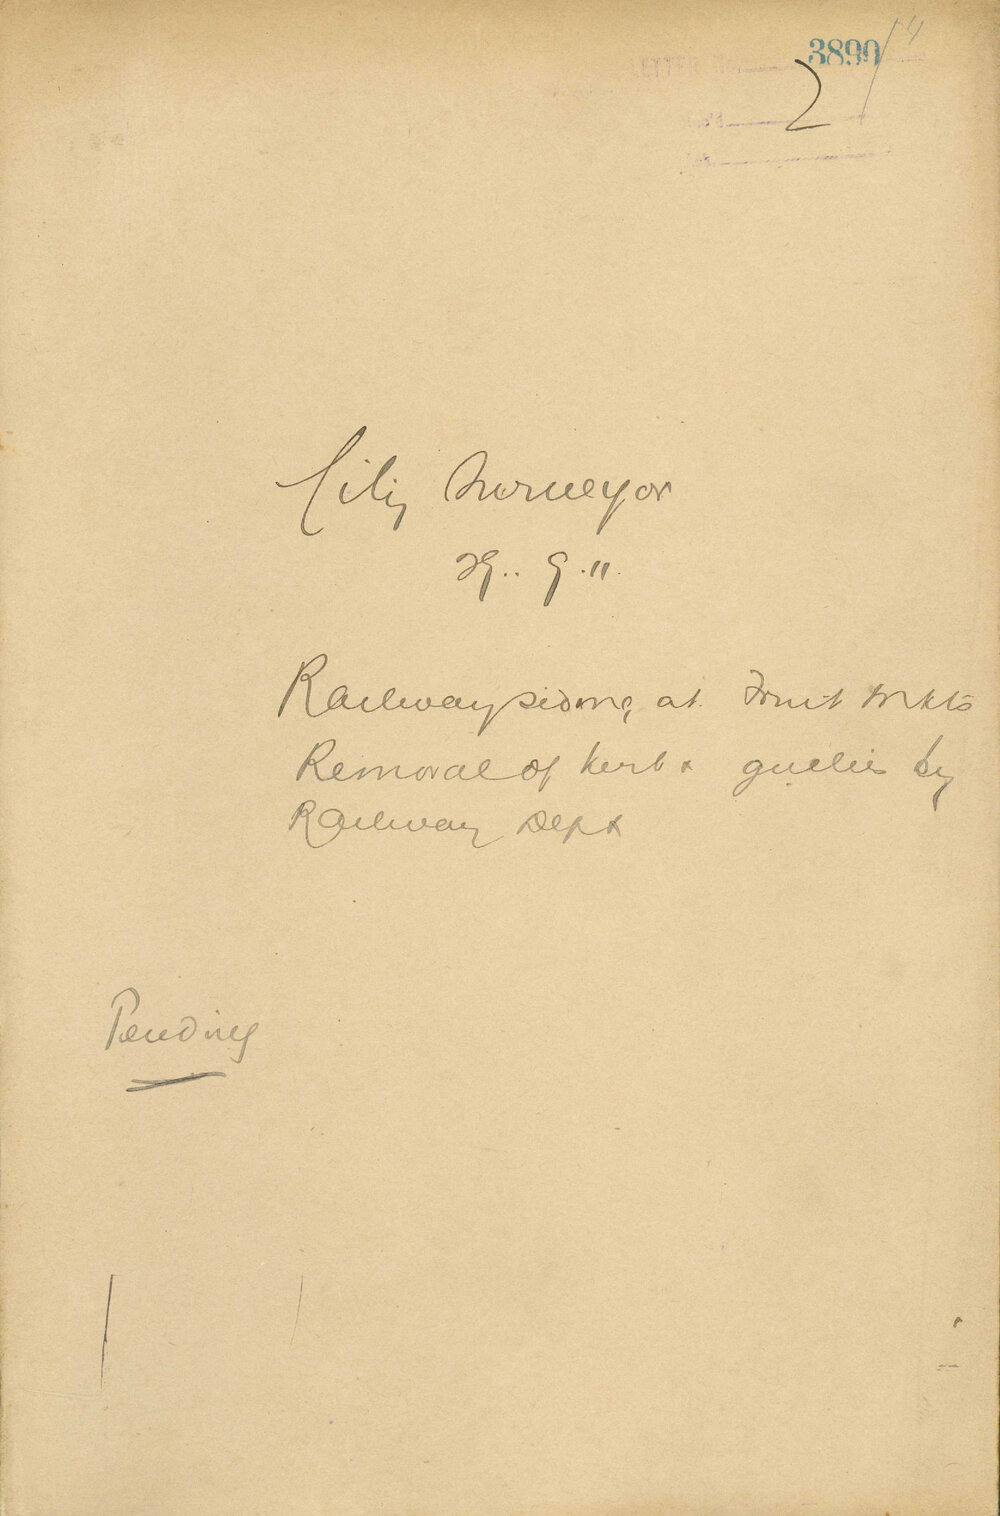 LETTER 3890/14
2
City Surveyor
29.. 9.11.
Railway siding at Fruit Mkts
Removal of kerb & gullies by
Railway Dept
Pending